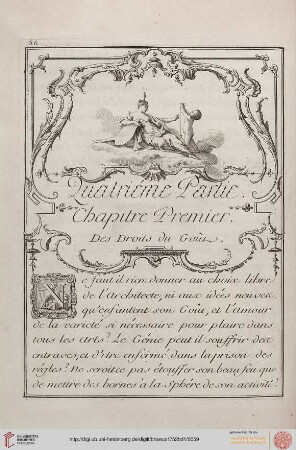 86.
Quatriême Partie.
Chapitre Premier.
Des Droits du Goût.
Ne faut il rien donner au choix libre
de l'architecte, ni aux idées nouvelles
qu'enfantent son Goût, et l'amour
de la varieté si nécessaire pour plaire dans
tous les arts? Le Génie peut il souffrir des
entraves, et d'être enfermé dans la prison des
régles? Ne seroit ce pas étouffer son beau feu que
de mettre des bornes à la Sphére de son activité!
http://digi.ub.uni-heidelberg.de/diglit/briseux1752bd1/0059